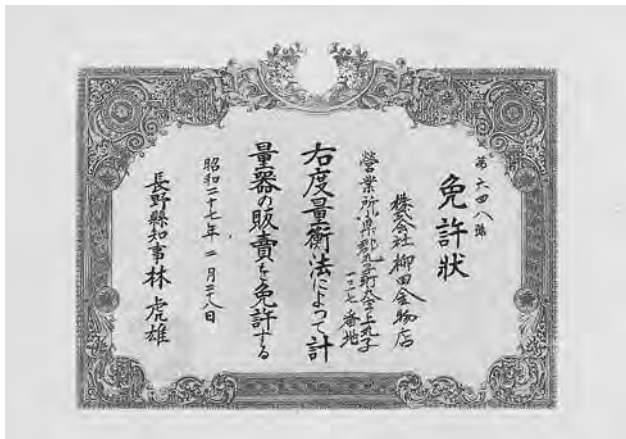 第六四八號
免許状
株式会社柳田金物店
營業所小県郡丸子町大字上丸子
一〇一七番地
右度量衡法によって計
量器の販賣を免許する
昭和二十七年二月二十八日
長野縣知事林虎雄